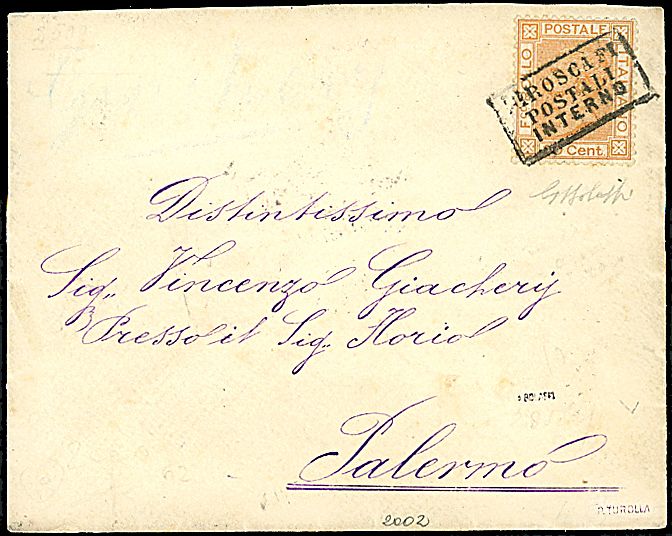 FRANCOBOLLO
POSTALE
ITALIANO
Cent.
PIROSCAFI
POSTALI
INTERNO
Distintissimo
Sig,, Vincenzo Giachery
Presso il Sig,, Florio
Palermo
P. TUROLLA
2002